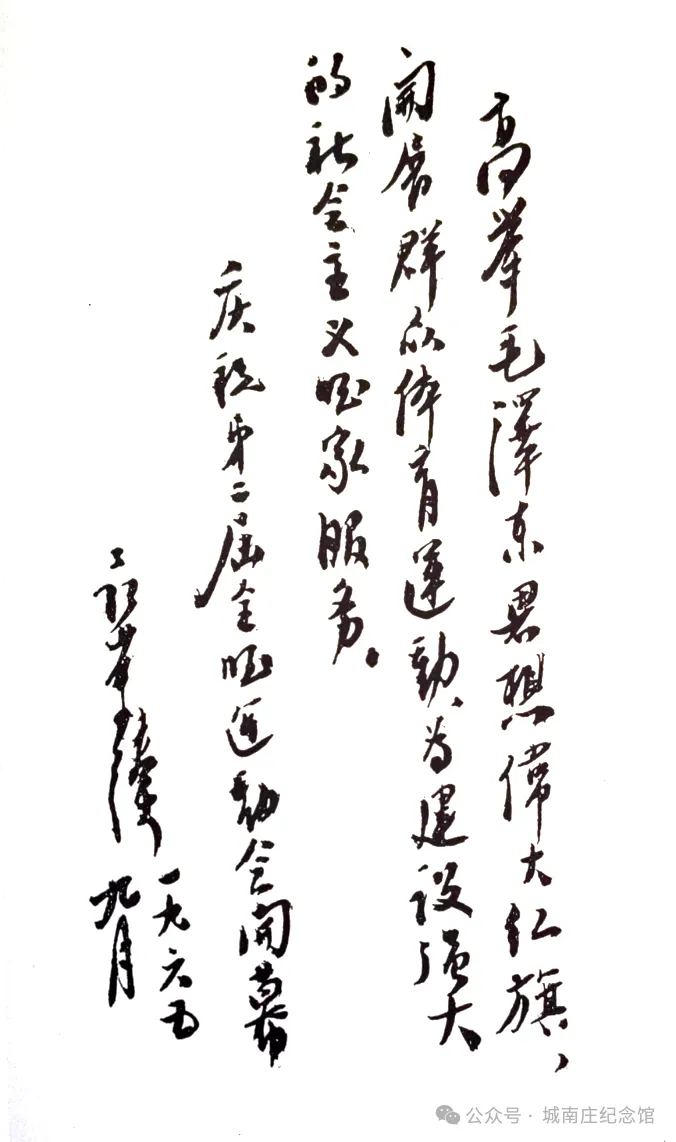 高举毛澤东思想偉大红旗，
開展群众体育運動，为建設强大
的社会主义国家服务。
庆祝第二届全国运动会開幕
聂荣臻
一九六五
九月
公众号·城南庄纪念馆